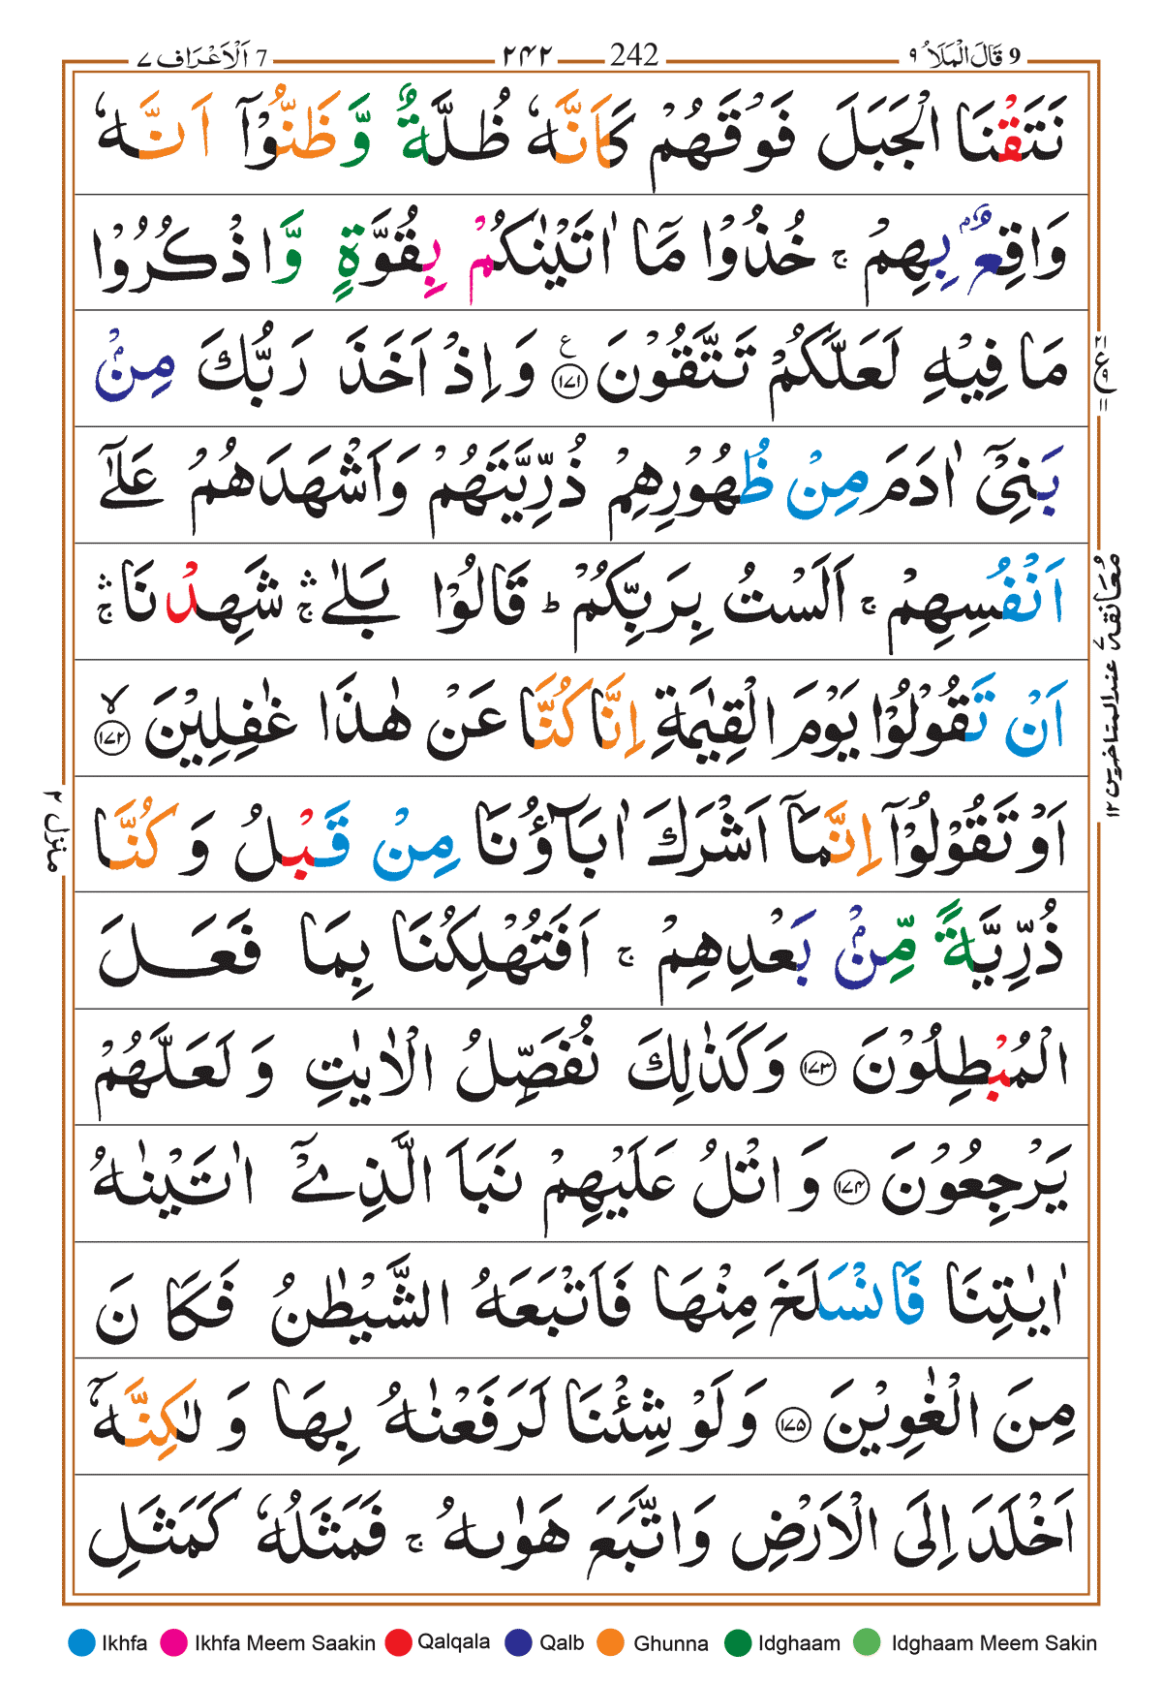 9 قَالَ الْمَلَاُ ۹ 242 ۲۴۲ 7 اَلْاَعْرَاف ۷
نَتَقْنَا الْجَبَلَ فَوْقَهُمْ كَاَنَّهٗ ظُلَّةٌ وَّظَنُّوْۤا اَنَّهٗ
وَاقِعٌۢ بِهِمْ ۚ خُذُوْا مَاۤ اٰتَيْنٰكُمْ بِقُوَّةٍ وَّاذْكُرُوْا
مَا فِيْهِ لَعَلَّكُمْ تَتَّقُوْنَ ع ۱۷۱ وَاِذْ اَخَذَ رَبُّكَ مِنْۢ
بَنِىْۤ اٰدَمَ مِنْ ظُهُوْرِهِمْ ذُرِّيَّتَهُمْ وَاَشْهَدَهُمْ عَلٰٓى
اَنْفُسِهِمْ ۚ اَلَسْتُ بِرَبِّكُمْ ؕ قَالُوْا بَلٰى ۛۚ شَهِدْنَا ۛۚ
اَنْ تَقُوْلُوْا يَوْمَ الْقِيٰمَةِ اِنَّا كُنَّا عَنْ هٰذَا غٰفِلِيْنَ ۙ ۱۷۲
اَوْ تَقُوْلُوْۤا اِنَّمَاۤ اَشْرَكَ اٰبَآؤُنَا مِنْ قَبْلُ وَكُنَّا
ذُرِّيَّةً مِّنْۢ بَعْدِهِمْ ۚ اَفَتُهْلِكُنَا بِمَا فَعَلَ
الْمُبْطِلُوْنَ ۱۷۳ وَكَذٰلِكَ نُفَصِّلُ الْاٰيٰتِ وَلَعَلَّهُمْ
يَرْجِعُوْنَ ۱۷۴ وَاتْلُ عَلَيْهِمْ نَبَاَ الَّذِىْۤ اٰتَيْنٰهُ
اٰيٰتِنَا فَانْسَلَخَ مِنْهَا فَاَتْبَعَهُ الشَّيْطٰنُ فَكَانَ
مِنَ الْغٰوِيْنَ ۱۷۵ وَلَوْ شِئْنَا لَرَفَعْنٰهُ بِهَا وَلٰكِنَّهٗۤ
اَخْلَدَ اِلَى الْاَرْضِ وَاتَّبَعَ هَوٰٮهُ ۚ فَمَثَلُهٗ كَمَثَلِ
مُعَانقه عند المتاخرین ۱۲
منزل ۲
Ikhfa Ikhfa Meem Saakin Qalqala Qalb Ghunna Idghaam Idghaam Meem Sakin